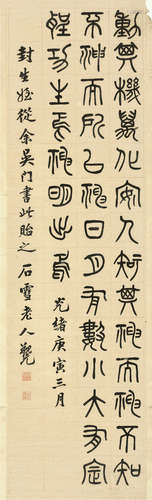 動其機萬化安人知其神而神不知
不神而所以神日月有數小大有定
聖功生焉神明出焉 光緒庚寅三月
封生姪從余吳門書此貽之 石雪老人